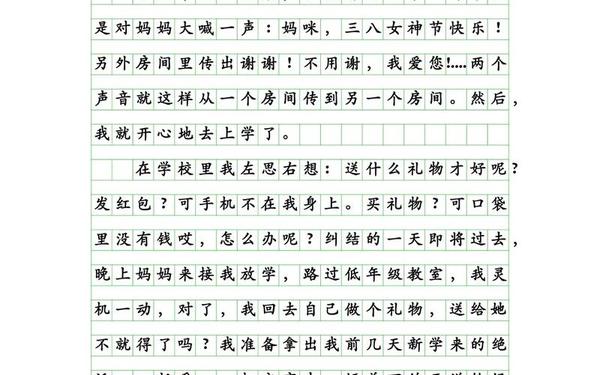 是对妈妈大喊一声：妈咪，三八女神节快乐！
另外房间里传出谢谢！不用谢，我爱您!....两个
声音就这样从一个房间传到另一个房间。然后，
我就开心地去上学了。
在学校里我左思右想：送什么礼物才好呢？
发红包？可手机不在我身上。买礼物？可口袋
里没有钱哎，怎么办呢？纠结的一天即将过去，
晚上妈妈来接我放学，路过低年级教室，我灵
机一动，对了，我回去自己做个礼物，送给她
不就得了吗？我准备拿出我前几天新学来的绝